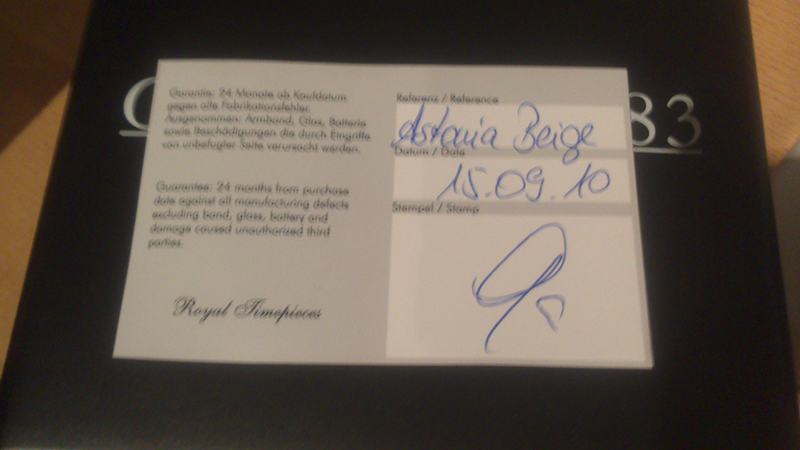 Garantie: 24 Monate ab Kaufdatum
gegen alle Fabrikationsfehler.
Ausgenommen: Armband, Glas, Batterie
sowie Beschädigungen die durch Eingriffe
von unbefugter Seite verursacht werden.
Guarantee: 24 months from purchase
date against all manufacturing defects
excluding band, glass, battery and
damage caused unauthorized third
parties.
Royal Timepieces
Referenz / Reference
Astoria Beige
Datum / Date
15.09.10
Stempel / Stamp
83